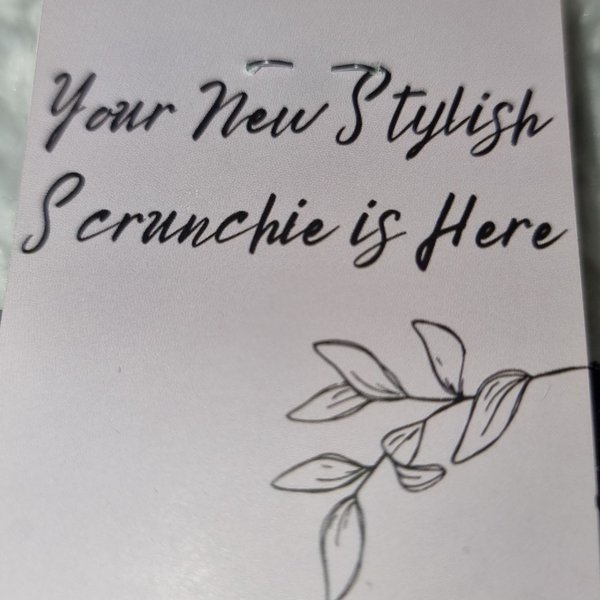 Your New Stylish
Scrunchie is Here